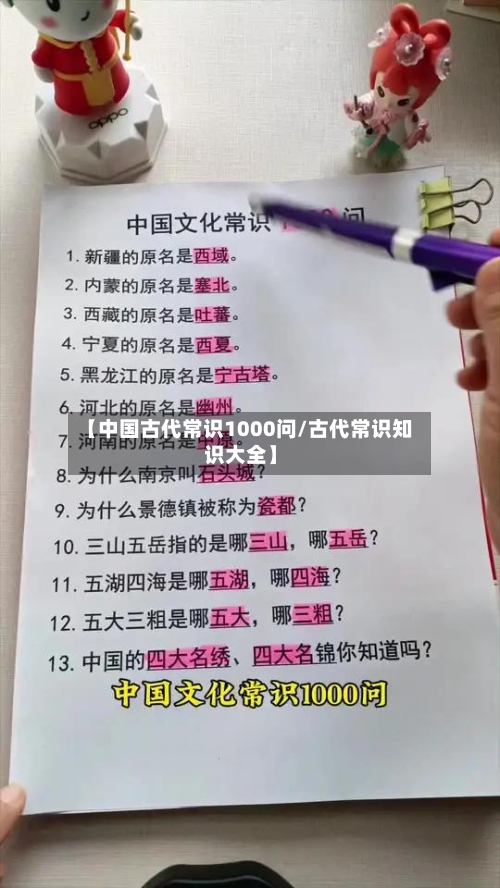 oppo
中国文化常识 问
1. 新疆的原名是西域。
2. 内蒙的原名是塞北。
3. 西藏的原名是吐蕃。
4. 宁夏的原名是西夏。
5. 黑龙江的原名是宁古塔。
6. 河北的原名是幽州。
【中国古代常识1000问/古代常识知
识大全】
7. 河南的原名是
8. 为什么南京叫石头城?
9. 为什么景德镇被称为瓷都?
10. 三山五岳指的是哪三山，哪五岳?
11. 五湖四海是哪五湖，哪四海?
12. 五大三粗是哪五大，哪三粗?
13. 中国的四大名绣、四大名锦你知道吗?
中国文化常识1000问